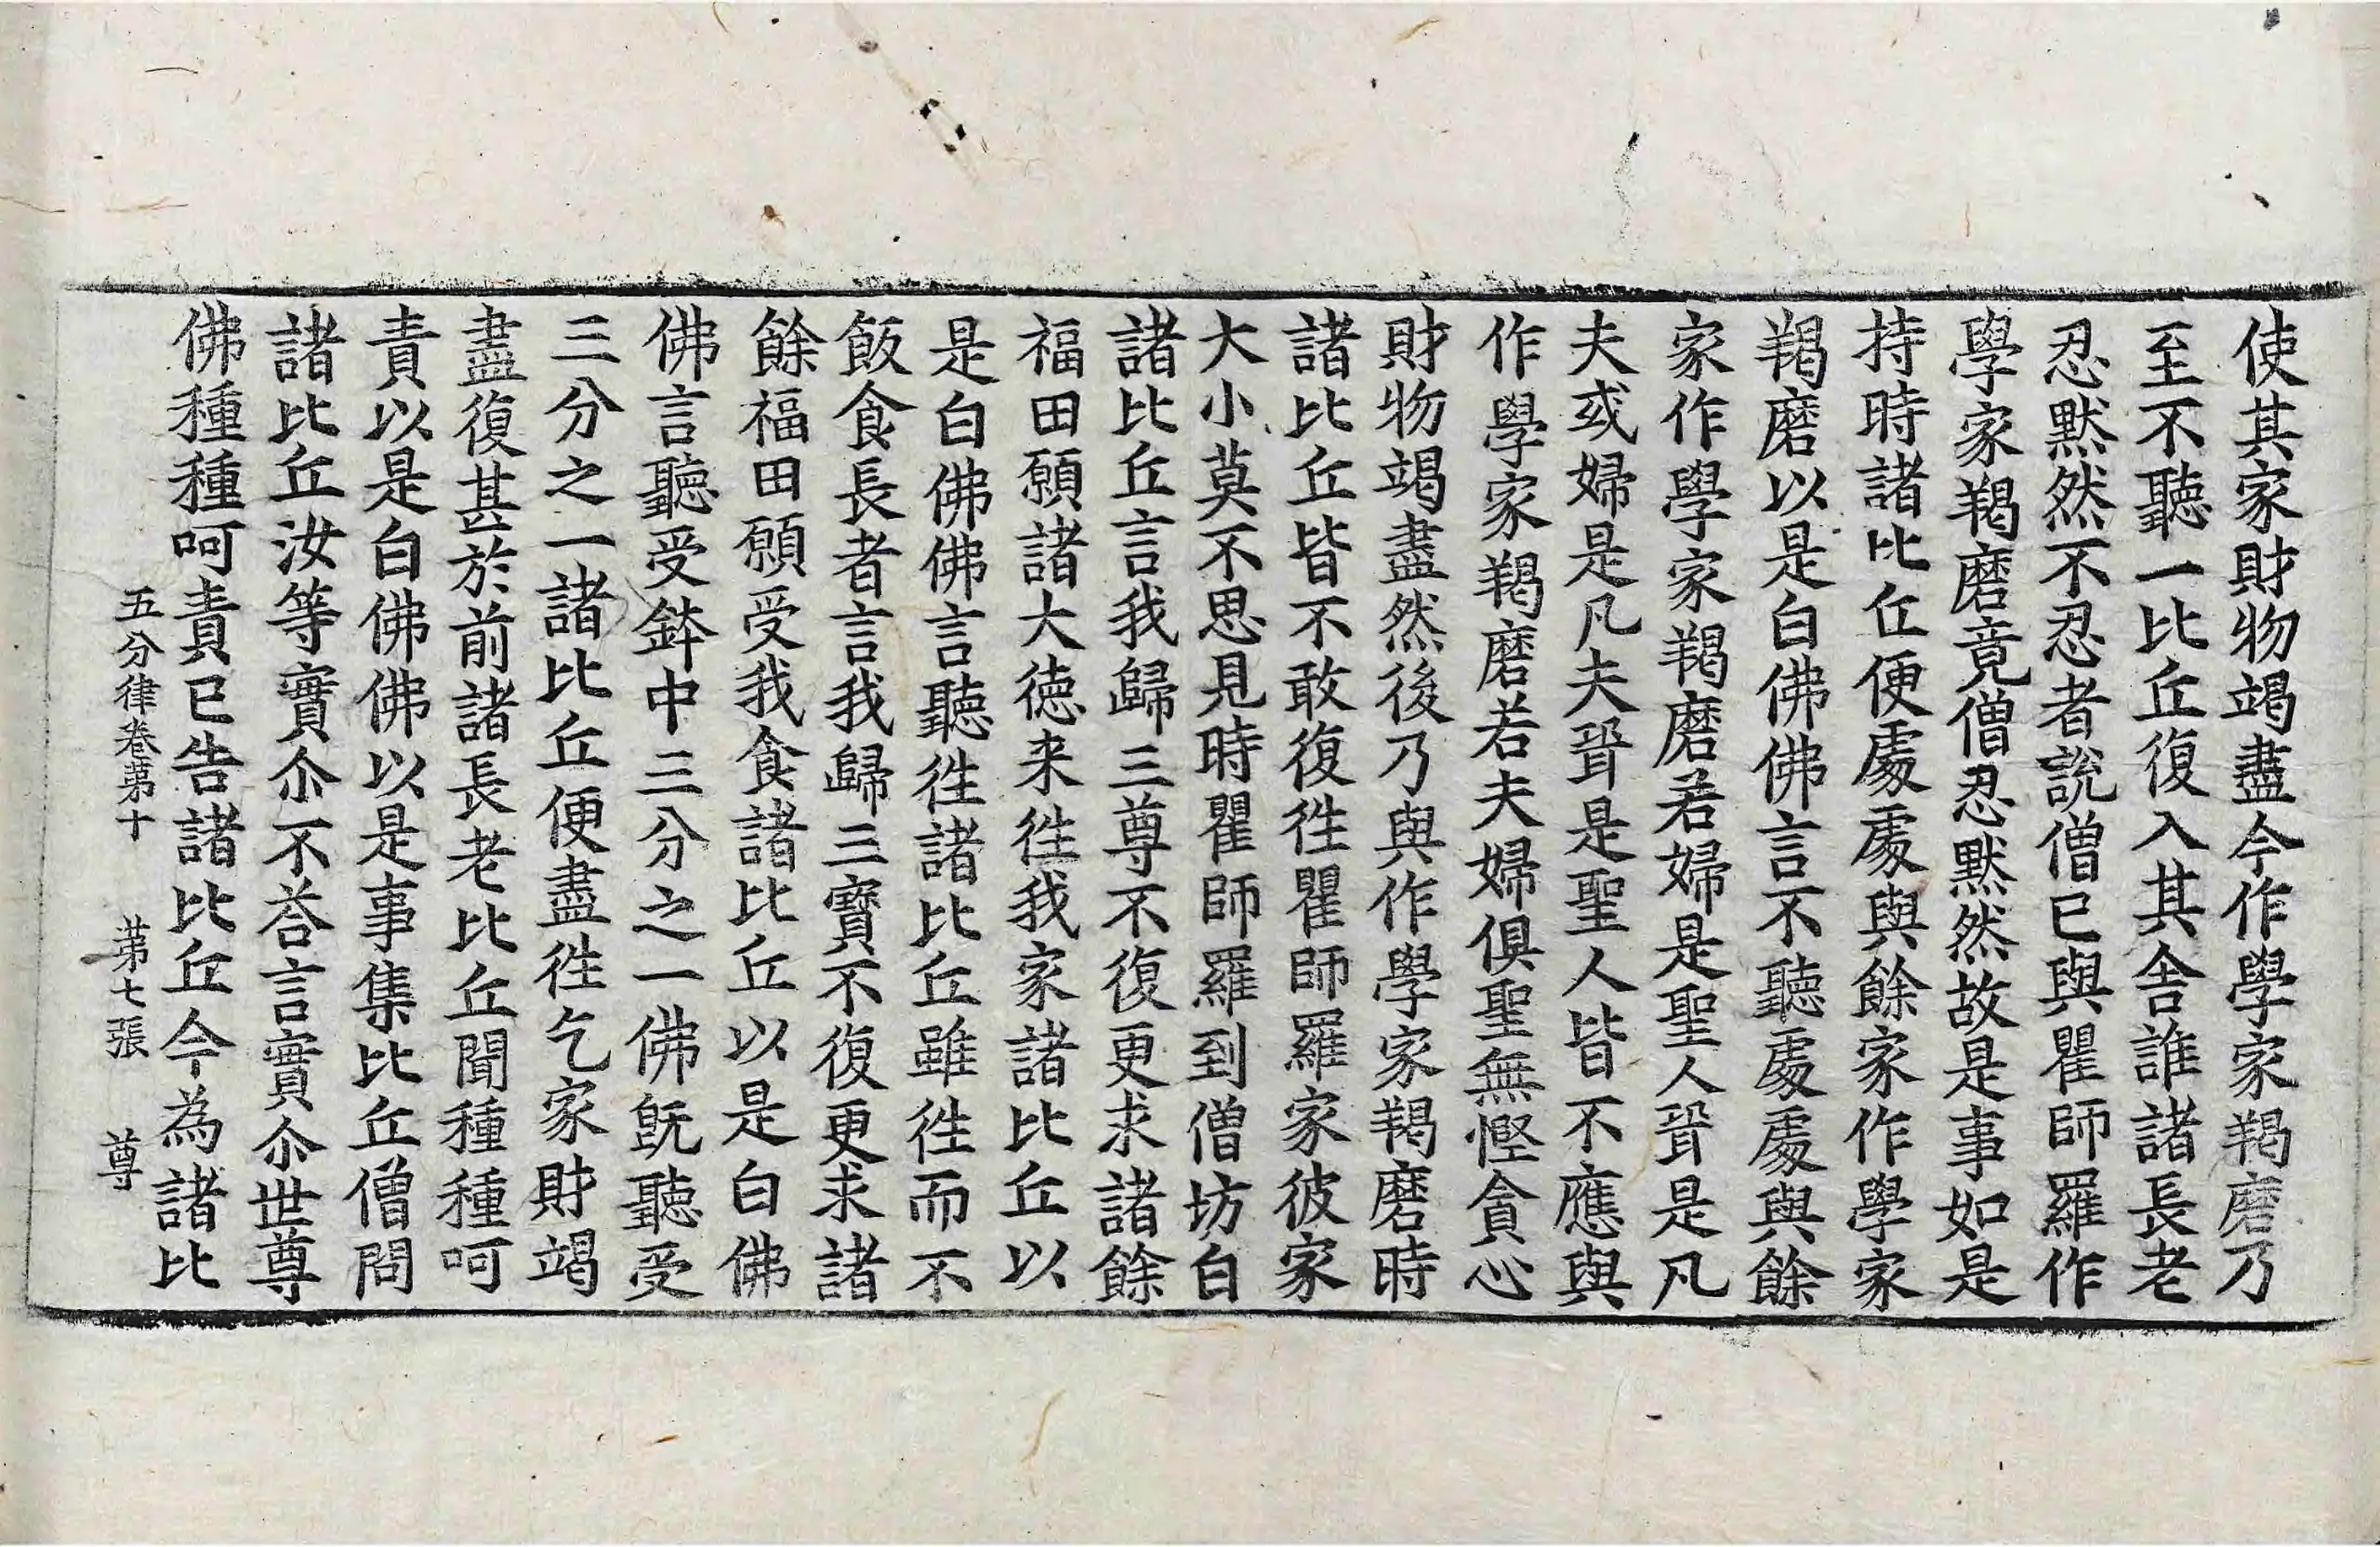 使其家財物竭盡今作學家羯磨乃
至不聽一比丘復入其舍誰諸長老
忍默然不忍者說僧已與瞿師羅作
學家羯磨竟僧忍默然故是事如是
持時諸比丘便處處與餘家作學家
羯磨以是白佛佛言不聽處處與餘
家作學家羯磨若婦是聖人壻是凡
夫或婦是凡夫壻是聖人皆不應與
作學家羯磨若夫婦俱聖無慳貪心
財物竭盡然後乃與作學家羯磨時
諸比丘皆不敢復徃瞿師羅家彼家
大小莫不思見時瞿師羅到僧坊白
諸比丘言我歸三尊不復更求諸餘
福田願諸大德来徃我家諸比丘以
是白佛佛言聽徃諸比丘雖徃而不
飯食長者言我歸三寶不復更求諸
餘福田願受我食諸比丘以是白佛
佛言聽受鉢中三分之一佛旣聽受
三分之一諸比丘便盡徃乞家財竭
盡復甚於前諸長老比丘聞種種呵
責以是白佛佛以是事集比丘僧問
諸比丘汝等實尒不荅言實尒世尊
佛種種呵責已告諸比丘今為諸比
五分律卷第十 第七張 尊